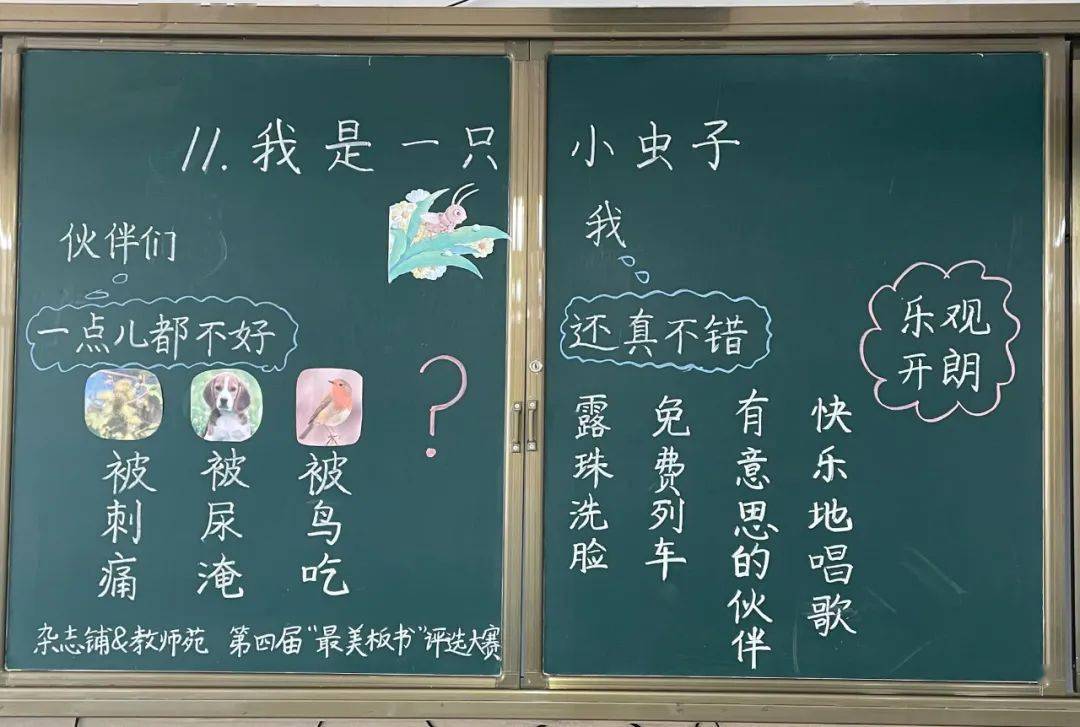 11.我是一只小虫子
伙伴们
一点儿都不好
被刺痛
被尿淹
被鸟吃
？
我
还真不错
露珠洗脸
免费列车
有意思的伙伴
快乐地唱歌
乐观
开朗
杂志铺&教师苑 第四届“最美板书”评选大赛